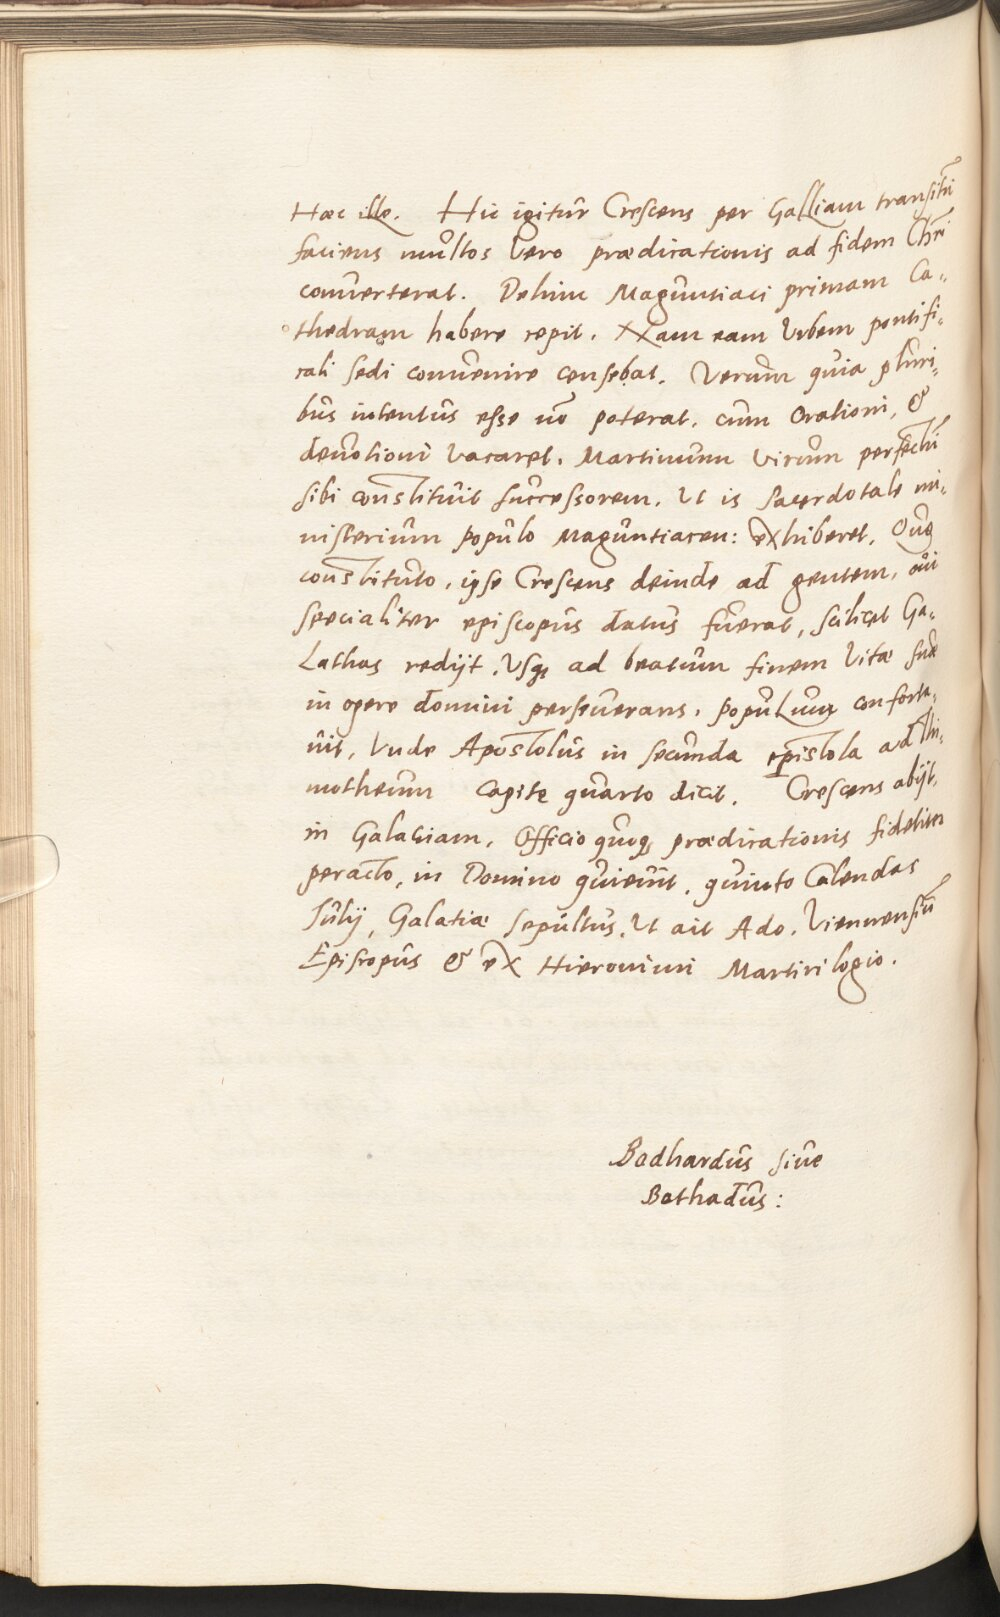 Hæc ille. Hic igitur Crescens per Galliam transitū
faciens multos vero prædicationis ad fidem Chri
converterat. Dehinc Maguntiaci primam Ca-
thedram habere cepit. Nam eam Urbem pontifi-
cali sedi convenire censebat. Verum quia pluri-
bus intentus esse nō poterat, cum Orationi, &
devotioni vacaret. Martinum virum perfectū
sibi constituit successorem. Ut is sacerdotale mi-
nisterium populo Maguntiacen: exhiberet. Quo
constituto, ipse Crescens deinde ad gentem, cui
specialiter episcopus datus fuerat, scilicet Ga-
lathas redijt. Usq ad beatum finem vitæ suæ
in opere domini perseverans, populum conforta-
vit, Unde Apostolus in secunda epistola ad Thi-
motheum capite quarto dicit. Crescens abijt
in Galatiam. Officio quoq prædicationis fideliter
peracto, in Domino quievit, quinto Calendas
Iulij, Galatiæ sepultus. Ut ait Ado. Viennensiū
Episcopus & ex Hieronimi Martirilogio.
Bodhardus sive
Bothadus: